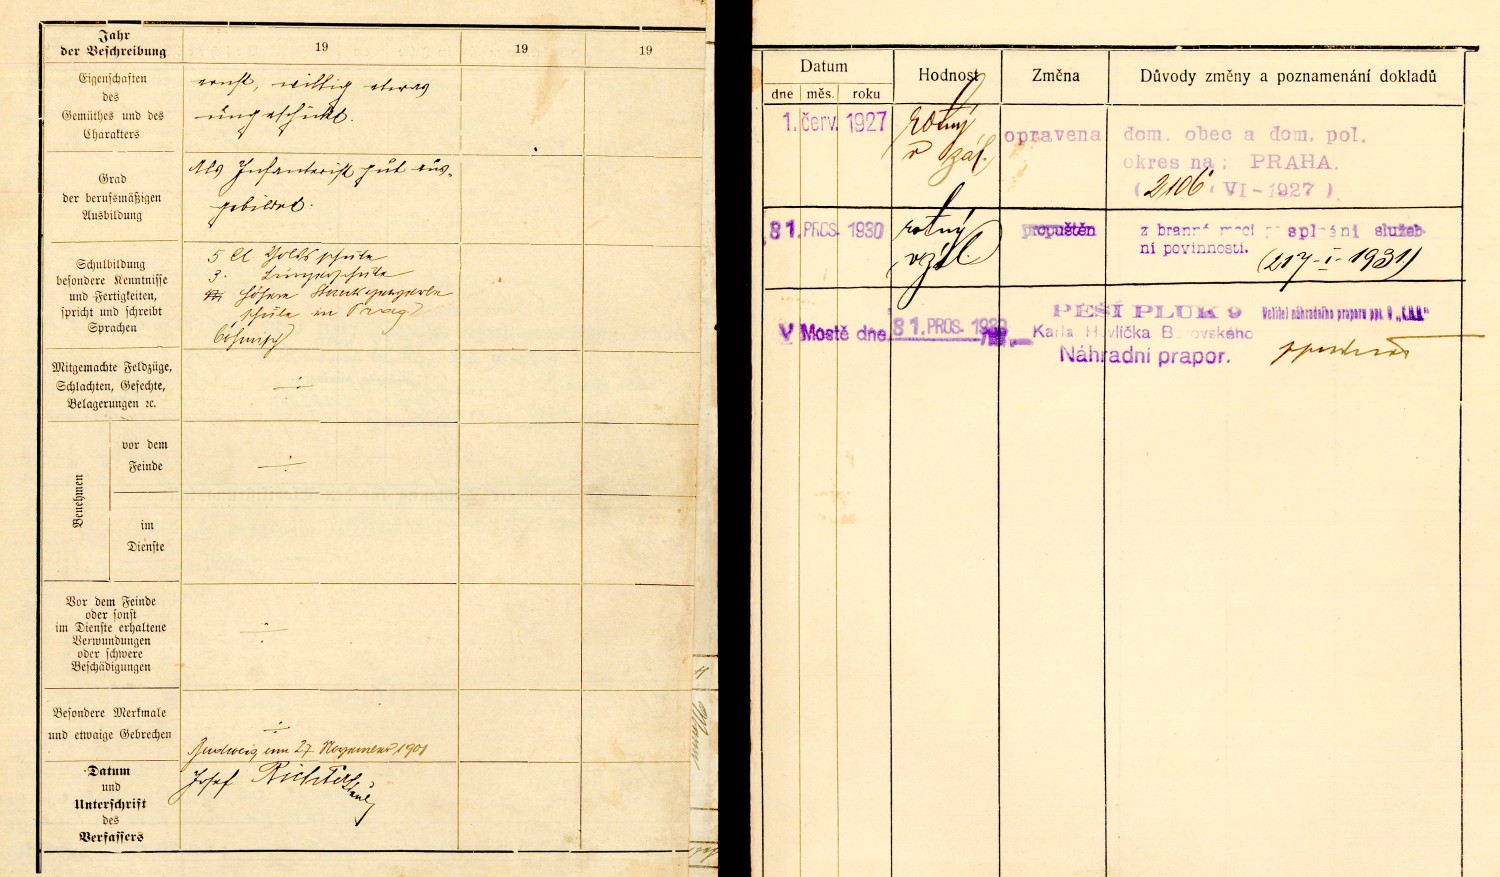 Jahr
der Beschreibung
19
19
19
Eigenschaften
des
Gemüthes und des
Charakters
ernst, willig etwas
ungeschickt.
Grad
der berufsmäßigen
Ausbildung
Als Infanterist gut aus-
gebildet.
Schulbildung
besondere Kenntnisse
und Fertigkeiten,
spricht und schreibt
Sprachen
5 Cl Volksschule
3. Bürgerschule
höhere
schule in Prag
böhmisch
Mitgemachte Feldzüge,
Schlachten, Gefechte,
Belagerungen ꝛc.
Benehmen
vor dem
Feinde
im
Dienste
Vor dem Feinde
oder sonst
im Dienste erhaltene
Verwundungen
oder schwere
Beschädigungen
Besondere Merkmale
und etwaige Gebrechen
Budweis am 27 November 1901
Datum
und
Unterschrift
des
Verfassers
Josef Richter
Datum
Hodnost
Změna
Důvody změny a poznamenání dokladů
dne
měs.
roku
1. červ. 1927
rotný
v zál.
opravena
dom. obec a dom. pol.
okres na: PRAHA.
(2106 VI-1927).
31. PROS. 1930
rotný
v zál.
propuštěn
z branné moci po splnění služeb-
ní povinnosti.
(217-I-1931)
V Mostě dne 31. PROS. 1930
PĚŠÍ PLUK 9
Karla Havlíčka Borovského
Náhradní prapor.
Velitel náhradního praporu pp. 9 „K.H.B"